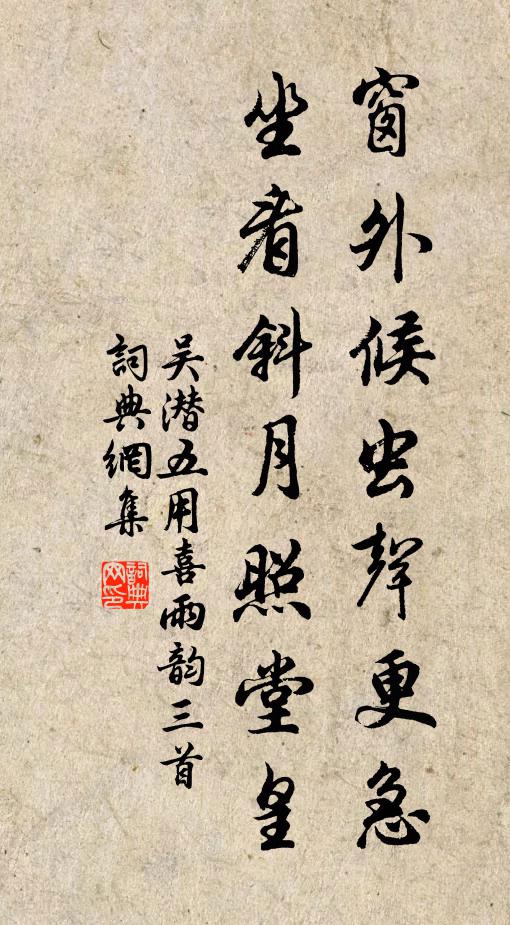 窗外候虫聲更急
坐看斜月照堂皇
吴潜五用喜雨韵三首
詞典網集
詞典网印